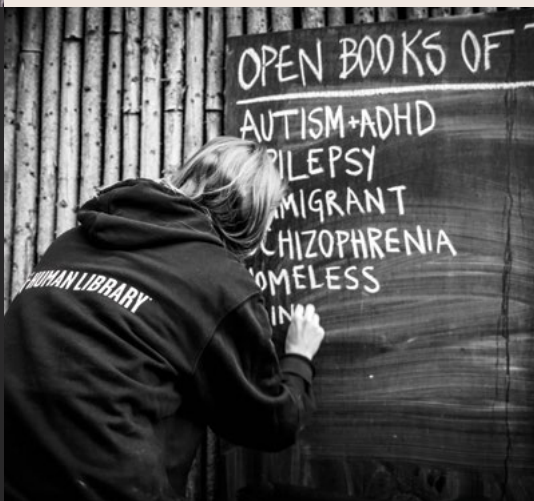 OPEN BOOKS OF
AUTISM+ADHD
PILEPSY
MIGRANT
CHIZOPHRENIA
OMELESS
IN
HUMAN LIBRARY